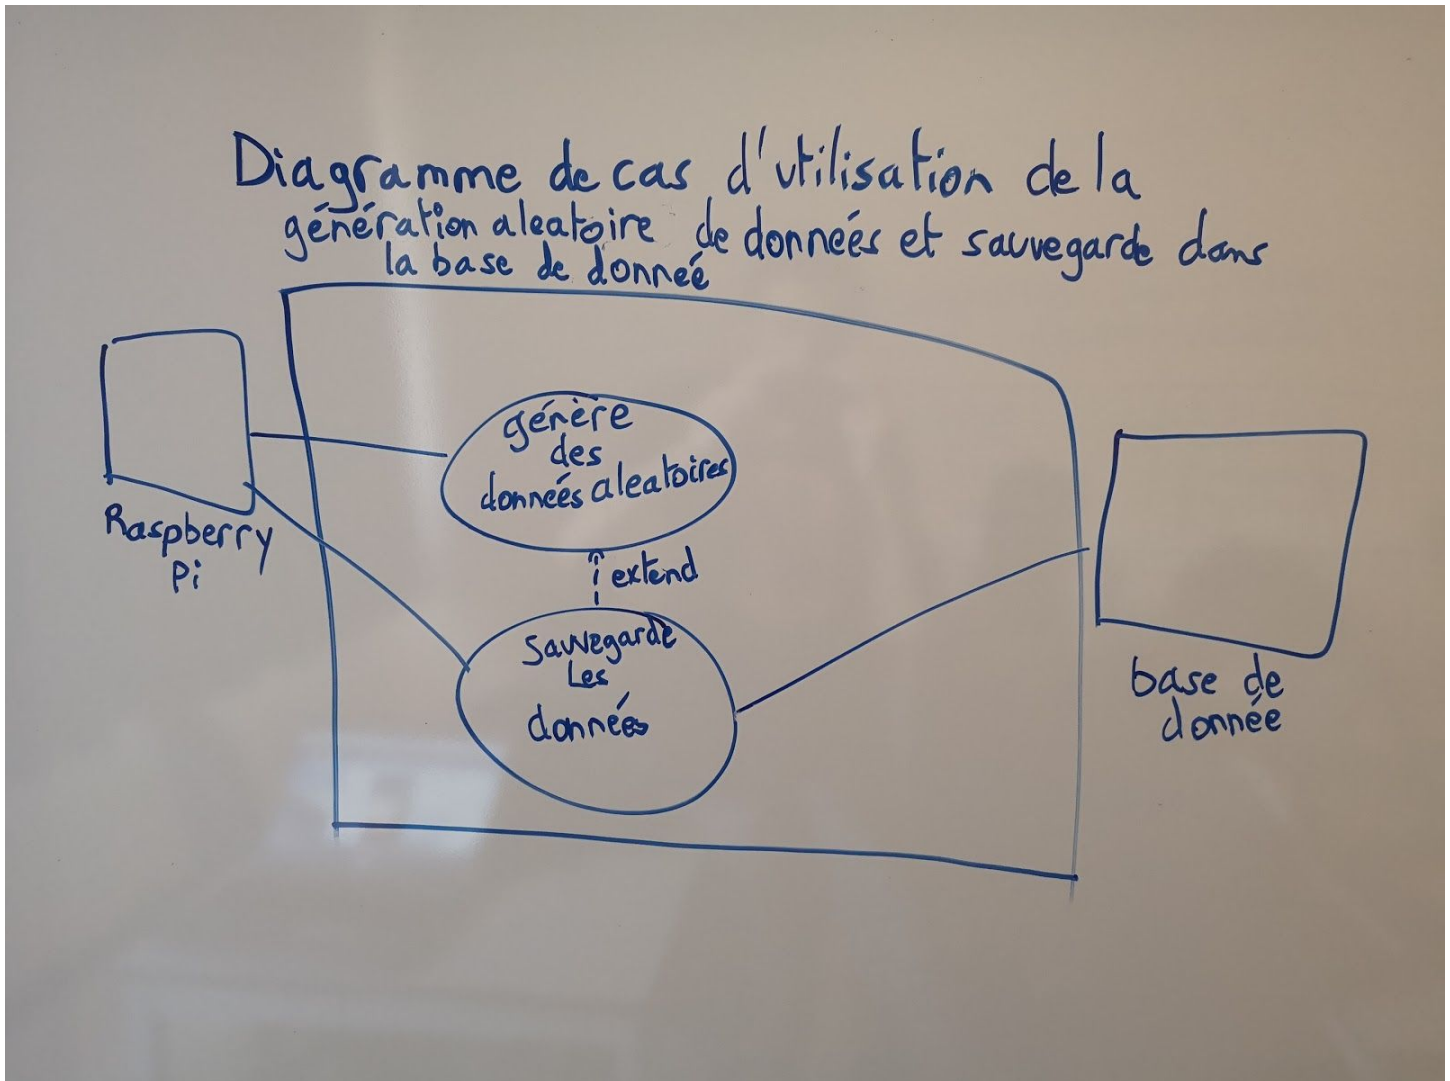 Diagramme de cas d'utilisation de la
génération aleatoire de données et sauvegarde dans
la base de donneé
génère
des
données aleatoires
Raspberry
Pi
extend
Sauvegarde
Les
données
base de
donnée